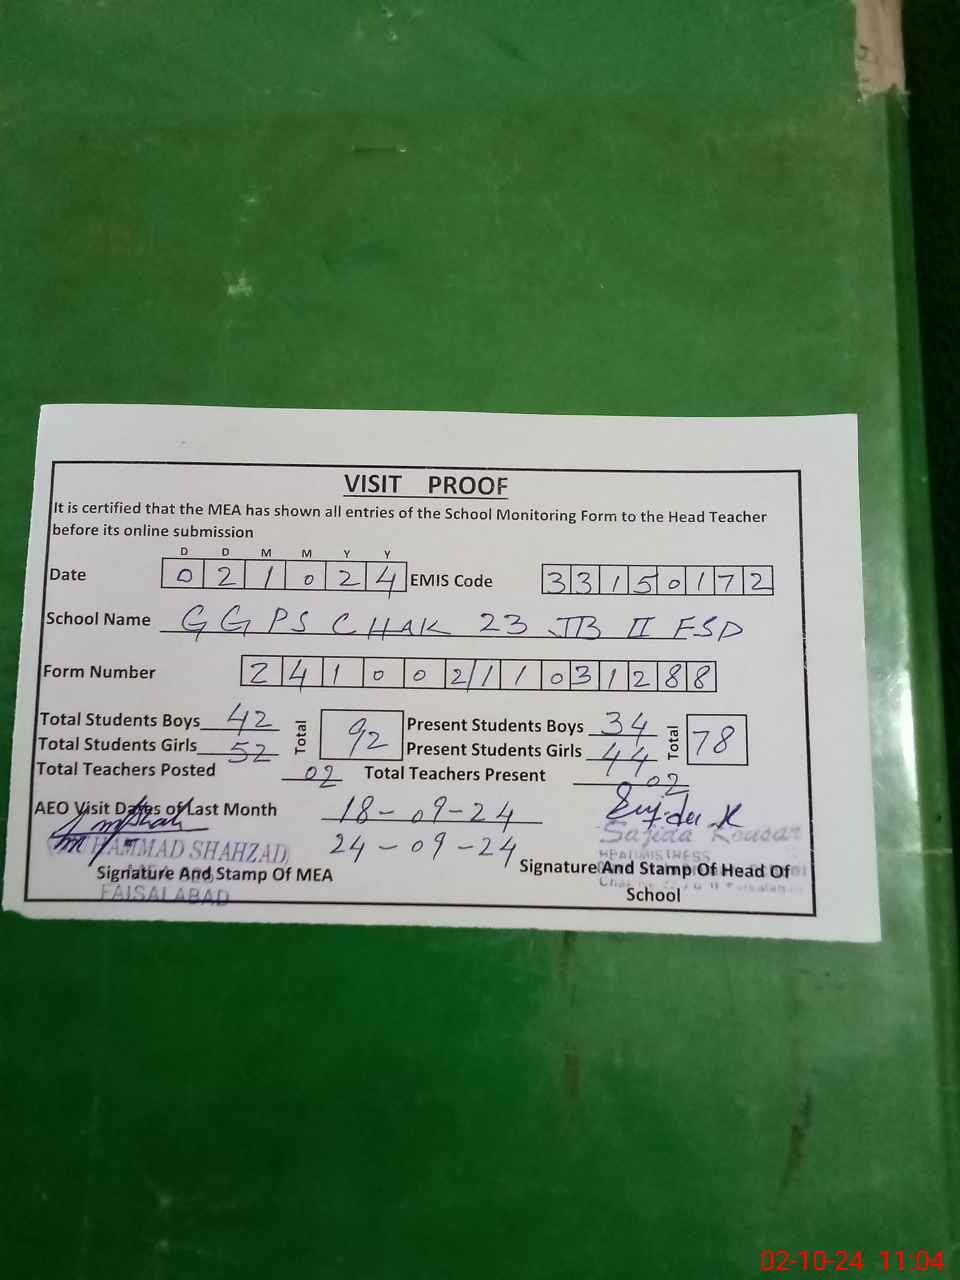 VISIT PROOF
It is certified that the MEA has shown all entries of the School Monitoring Form to the Head Teacher
before its online submission
D D M M Y Y
Date 0 2 1 0 2 4 EMIS Code 3 3 1 5 0 1 7 2
School Name G G P S CHAK 23 JB II FSD
Form Number 2 4 1 0 0 2 1 1 0 3 1 2 8 8
Total Students Boys 42 Total 92 Present Students Boys 34 Total 78
Total Students Girls 52 Present Students Girls 44
Total Teachers Posted 02 Total Teachers Present 02
AEO Visit Dates of Last Month 18-09-24
24-09-24
MUHAMMAD SHAHZAD
Sajida Kousar
HEADMISTRESS
Signature And Stamp Of MEA
FAISALABAD
Signature And Stamp Of Head Of
School
02-10-24 11:04